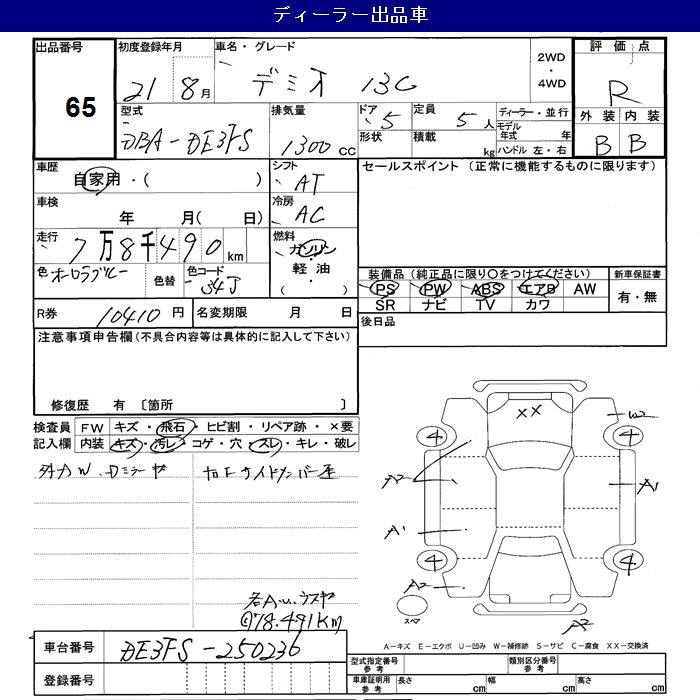 ディーラー出品車
出品番号
65
初度登録年月
21
8月
車名・グレード
デミオ 13C
2WD
・
4WD
評価点
R
型式
DBA-DE3FS
排気量
1300cc
ドア
5
定員
5人
形状
積載
kg
ディーラー・並行
モデル
年式
年
ハンドル 左・右
外装 内装
B B
車歴
自家用・( )
シフト
AT
車検
年 月( 日)
冷房
AC
走行
7万8千490km
燃料
ガソリン
・
軽油
( )
色
オーロラブルー
色替
色コード
34J
セールスポイント (正常に機能するものに限ります)
装備品(純正品に限り○をつけてください)
PS PW ABS エアB AW
SR ナビ TV カワ
新車保証書
有・無
R券
10410円
名変期限
月 日
後日品
注意事項申告欄(不具合内容等は具体的に記入して下さい)
修復歴 有 〔箇所 〕
検査員
記入欄
FW キズ・飛石・ヒビ割・リペア跡・×要
内装 キズ・汚レ・コゲ・穴・スレ・キレ・破レ
各Au、ウスキ
78.491KM
XX
W2
4
4
4
4
A2
A1
A1
A2
A2
スペア
A-キズ E-エクボ U-凹み W-補修跡 S-サビ C-腐食 XX-交換済
車台番号
DE3FS-250236
登録番号
型式指定番号
参考
類別区分番号
参考
車庫証明用
参考
長さ cm 幅 cm 高さ cm